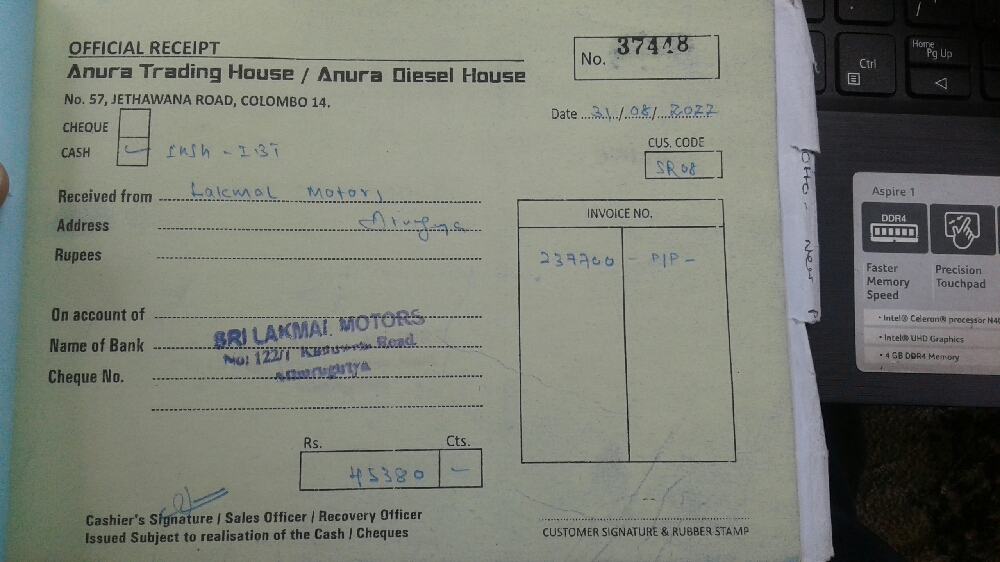 OFFICIAL RECEIPT
No. 37448
Anura Trading House / Anura Diesel House
No. 57, JETHAWANA ROAD, COLOMBO 14.
Date 31/08/2022
CHEQUE
CASH
CUS. CODE
SR08
Received from Lakmal Motors
Address
Rupees
INVOICE NO.
237700 - P/P -
On account of
Name of Bank
Cheque No.
SRI LAKMAL MOTORS
No: 122/1 Road
Rs. Cts.
45380 -
Cashier's Signature / Sales Officer / Recovery Officer
Issued Subject to realisation of the Cash / Cheques
CUSTOMER SIGNATURE & RUBBER STAMP
Ctrl
Home
Pg Up
Aspire 1
DDR4
Faster
Memory
Speed
Precision
Touchpad
• Intel® Celeron® processor N40
• Intel® UHD Graphics
• 4 GB DDR4 Memory